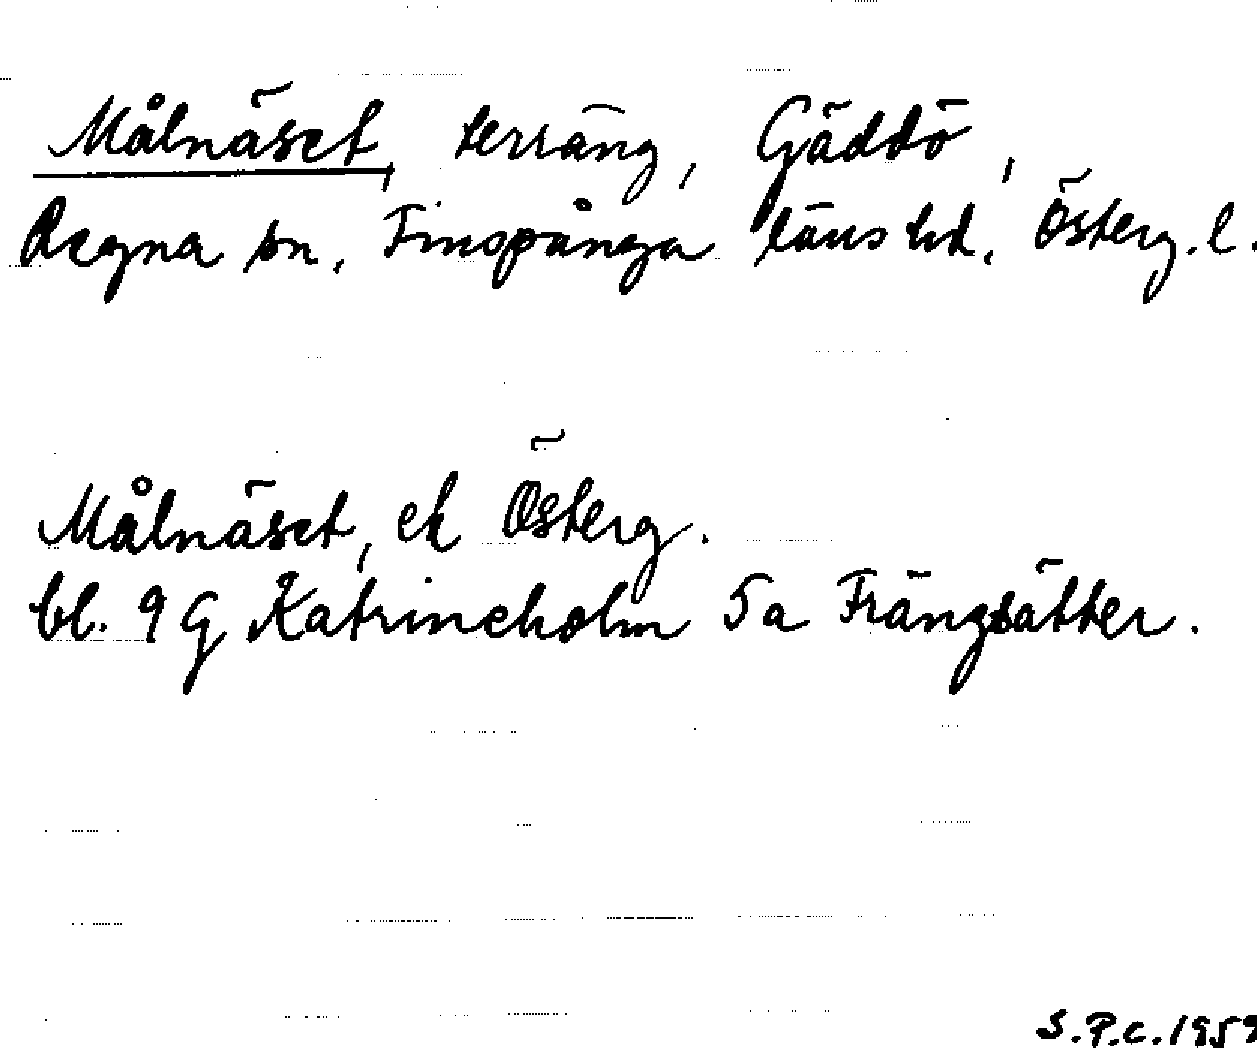 Målnäset, terräng, Gäddö,
Regna sn, Finspånga läns hd, Österg. l.
Målnäset, ek Österg.
bl. 9 G Katrineholm 5a Frängsätter.
S.P.C. 1959